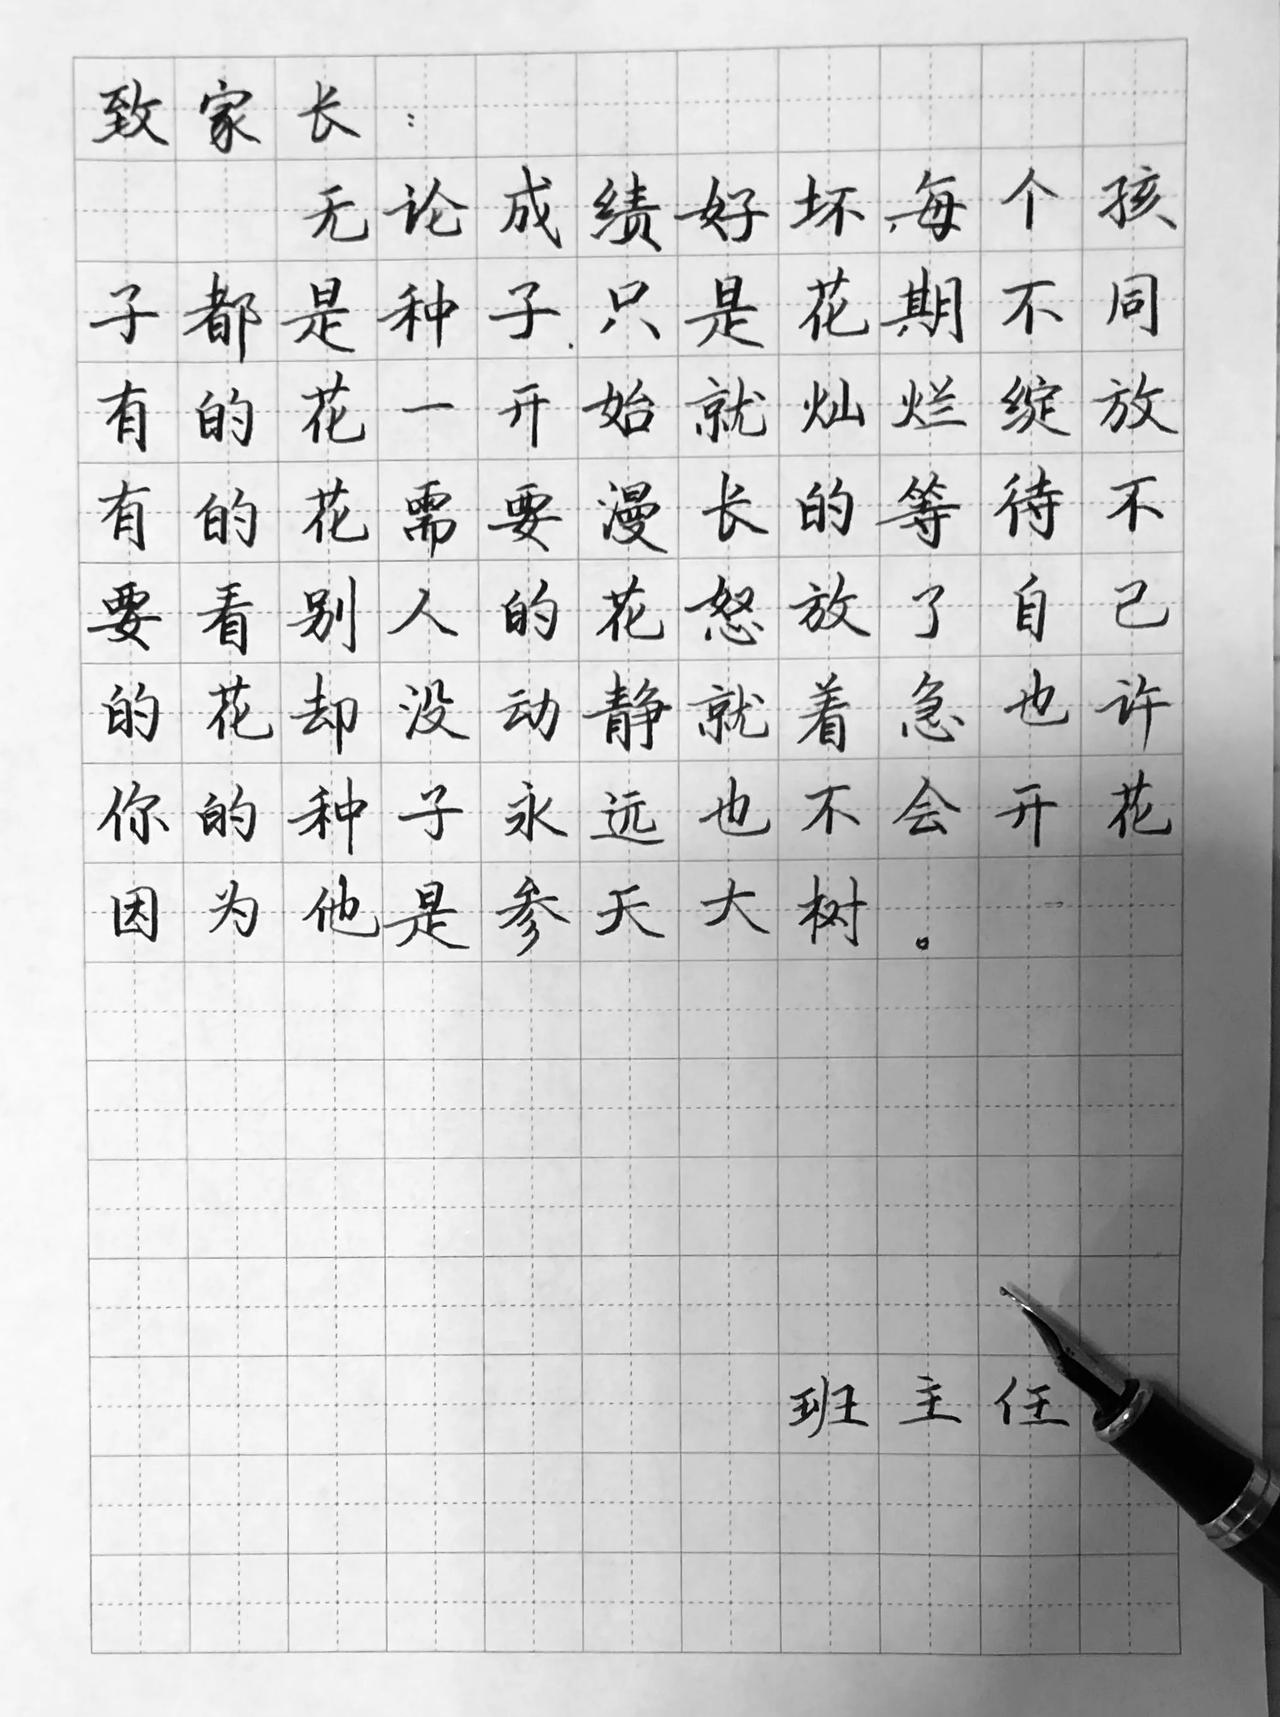 致家长：
无论成绩好坏每个孩
子都是种子.只是花期不同
有的花一开始就灿烂绽放
有的花需要漫长的等待不
要看别人的花怒放了自己
的花却没动静就着急也许
你的种子永远也不会开花
因为他是参天大树。
班主任